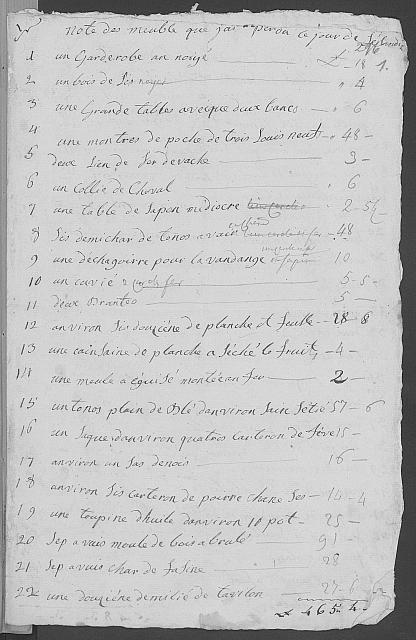 note des meuble que jai perou le jour de
1 un Garderobe an noïé 18 1.
2 un bois de noyer 4
3 une Grande tables avecque deux bancs 6
4 une montres de poche de trois Louis neuf 48
5 deux Lien de fer de vache 3
6 un Collié de Cheval 6
7 une table de Sapon médiocre 2-5
8 Sis demichar de tonos a vair 48
9 une dechagoirre pour la vandange 10
10 un cuvié 5-5
11 deux Branteo 5
12 anviron Sis douziéne de planche et feulle 28 8
13 une cainsaine de planche a Séché le fruit 4
14 une meule a éguisé montée an fer 2
15 un tonos plain de Blé danviron Sain Sétié 57-6
16 un Saque danviron quatros Carteron de féve 15
17 anviron un Sas de nois 16
18 anviron Sis Carteron de poirre chane Sos 14-4
19 une toupine dhuile danviron 10 pot 25
20 Sep a vais moule de bois a brulé 91
21 Sep a vais char de fasine 28
22 une douziéne de milié de tavilon 27-6
465-4